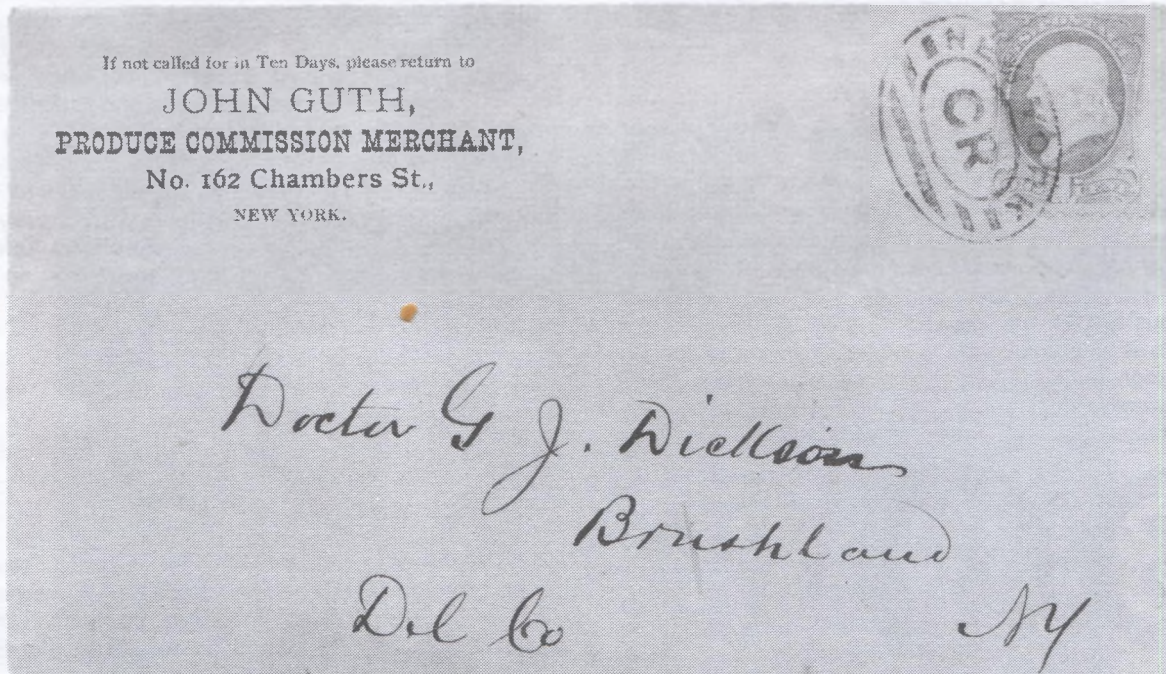 If not called for in Ten Days, please return to
JOHN GUTH,
PRODUCE COMMISSION MERCHANT,
No. 162 Chambers St.,
NEW YORK.
CR
Doctor G J. Dickson
Brushland
Del Co NY